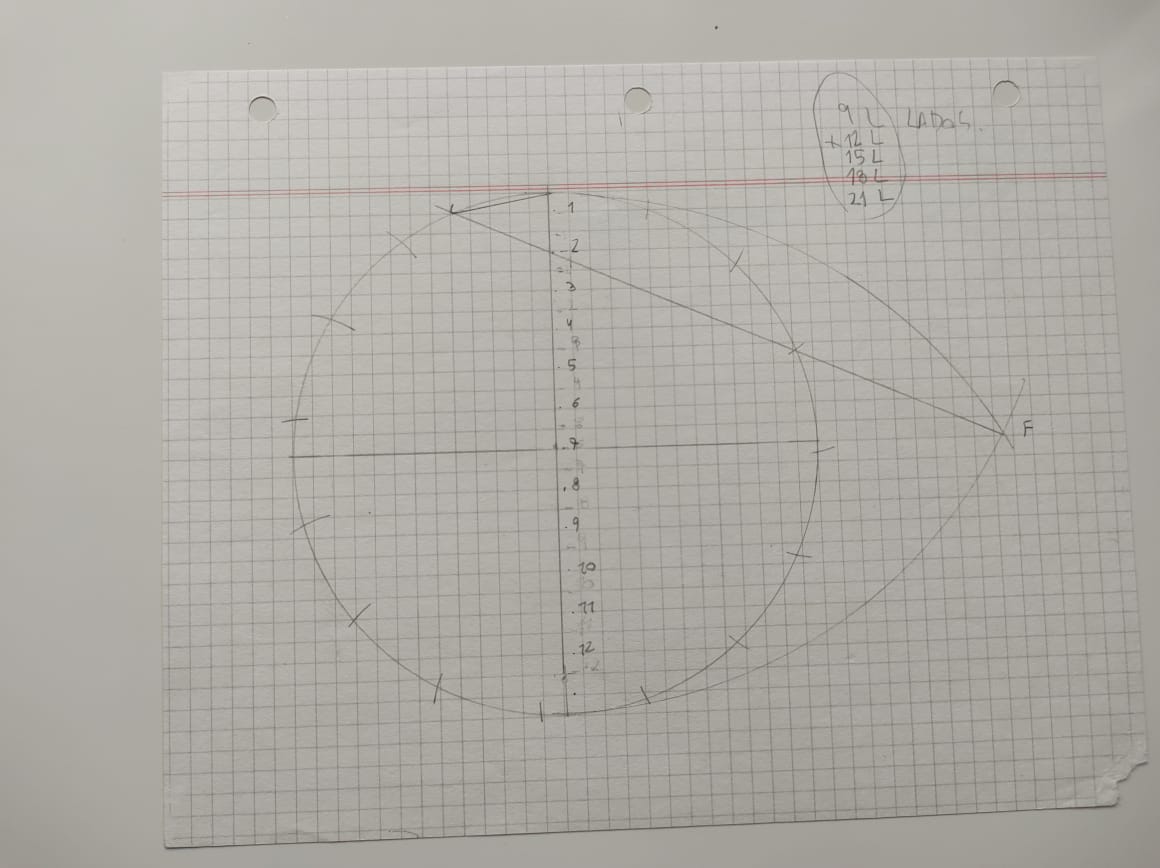 9 L LADOS.
+12 L
15 L
18 L
21 L
1
2
3
4
5
6
7
8
9
10
11
12
F